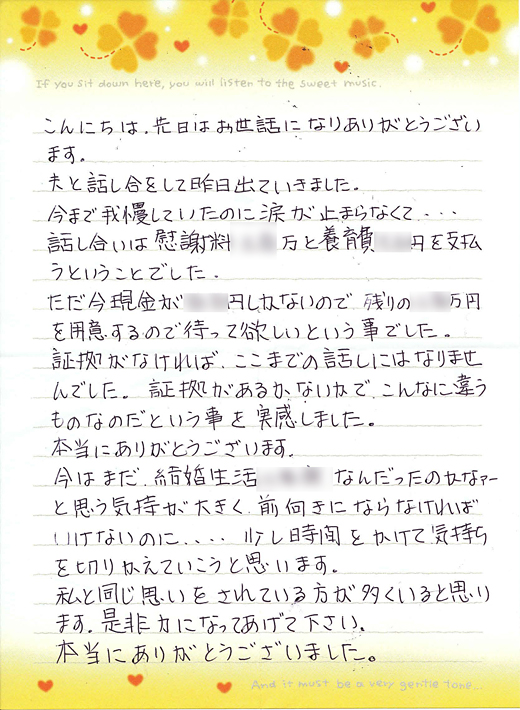 If you sit down here, you will listen to the sweet music.
こんにちは、先日はお世話になりありがとうござい
ます。
夫と話し合をして昨日出ていきました。
今まで我慢していたのに涙が止まらなくて・・・
話し合いは慰謝料 万と養育費 円を支払
うということでした。
ただ今現金が 円しかないので、残りの 万円
を用意するので待って欲しいという事でした。
証拠がなければ、ここまでの話しにはなりませ
んでした。証拠があるかないかで、こんなに違う
ものなのだという事を実感しました。
本当にありがとうございます。
今はまだ、結婚生活 なんだったのかなァー
と思う気持が大きく、前向きにならなければ
いけないのに、、、、少し時間をかけて気持ち
を切りかえていこうと思います。
私と同じ思いをされている方が多くいると思い
ます。是非力になってあげて下さい。
本当にありがとうございました。
And it must be a very gentle tone...